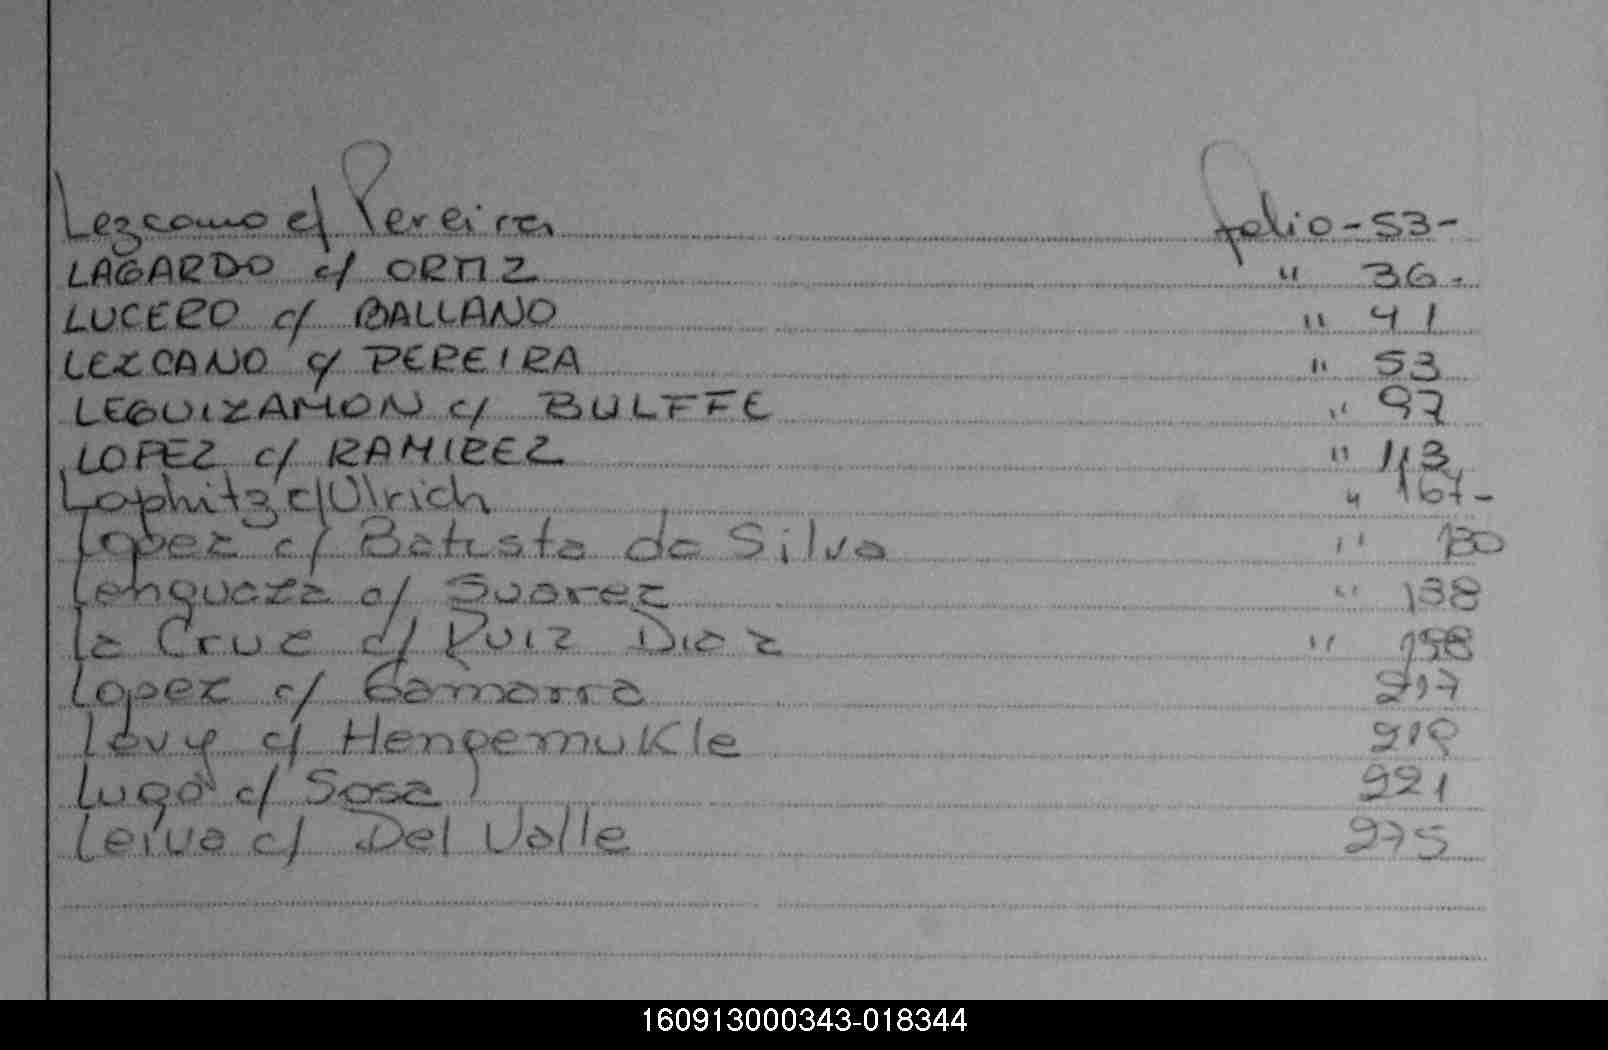 Lezcano c/ Pereira folio - 53 -
LAGARDO c/ ORTIZ " 36.
LUCERO c/ BALLANO " 41
LEZCANO c/ PEREIRA " 53
LEGUIZAMON c/ BULFFE " 97
LOPEZ c/ RAMIREZ " 113
Lophitz c/ Ulrich " 167-
Lopez c/ Batista da Silva "
Lenguaza c/ Suarez " 138
La Cruz c/ Ruiz Diaz " 198
Lopez c/ Gamarra 217
Levy c/ 219
Lugo c/ Sosa 221
Leiva c/ Del Valle 275
160913000343-018344